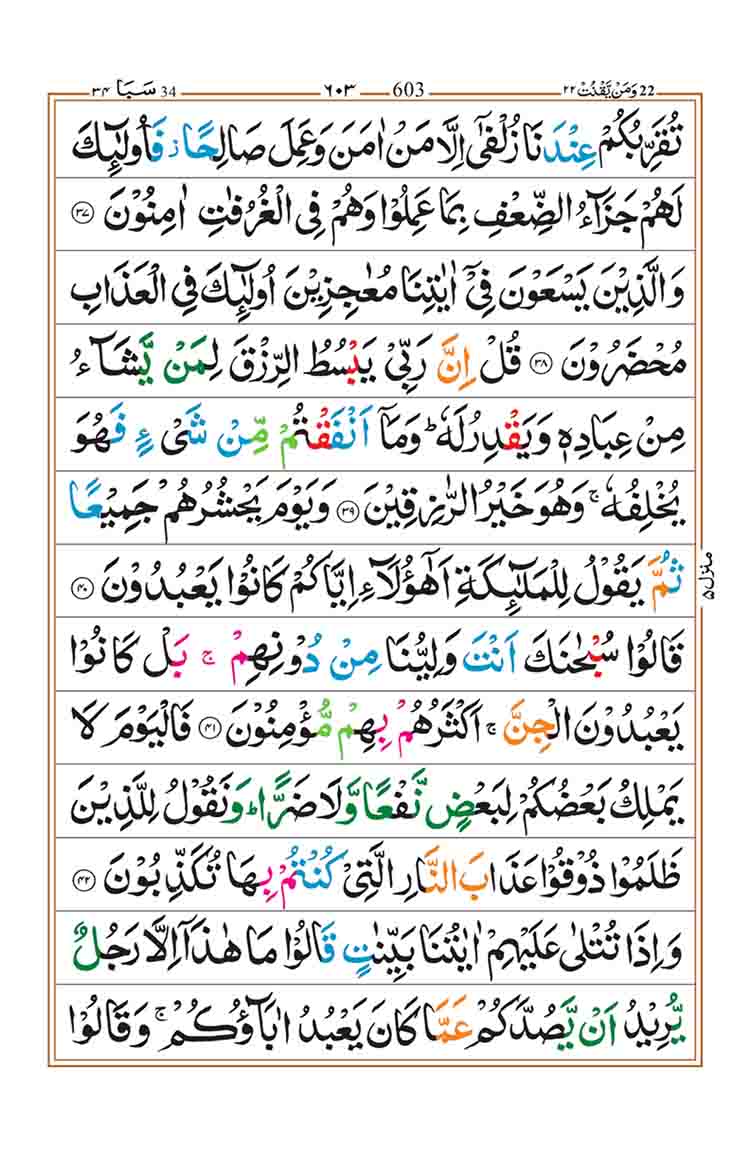 22 وَمَنْ يَّقْنُتْ ٢٢ 603 ٦٠٣ 34 سَبَا ٣٤
تُقَرِّبُكُمْ عِنْدَنَا زُلْفٰٓى اِلَّا مَنْ اٰمَنَ وَعَمِلَ صَالِحًا ز فَاُولٰٓئِكَ
لَهُمْ جَزَآءُ الضِّعْفِ بِمَا عَمِلُوْا وَهُمْ فِى الْغُرُفٰتِ اٰمِنُوْنَ ٣٧
وَالَّذِيْنَ يَسْعَوْنَ فِىْٓ اٰيٰتِنَا مُعٰجِزِيْنَ اُولٰٓئِكَ فِى الْعَذَابِ
مُحْضَرُوْنَ ٣٨ قُلْ اِنَّ رَبِّىْ يَبْسُطُ الرِّزْقَ لِمَنْ يَّشَآءُ
مِنْ عِبَادِهٖ وَيَقْدِرُ لَهٗ ؕ وَمَآ اَنْفَقْتُمْ مِّنْ شَىْءٍ فَهُوَ
يُخْلِفُهٗ ۚ وَهُوَ خَيْرُ الرّٰزِقِيْنَ ٣٩ وَيَوْمَ يَحْشُرُهُمْ جَمِيْعًا
ثُمَّ يَقُوْلُ لِلْمَلٰٓئِكَةِ اَهٰٓؤُلَآءِ اِيَّاكُمْ كَانُوْا يَعْبُدُوْنَ ٤٠
قَالُوْا سُبْحٰنَكَ اَنْتَ وَلِيُّنَا مِنْ دُوْنِهِمْ ۚ بَلْ كَانُوْا
يَعْبُدُوْنَ الْجِنَّ ۚ اَكْثَرُهُمْ بِهِمْ مُّؤْمِنُوْنَ ٤١ فَالْيَوْمَ لَا
يَمْلِكُ بَعْضُكُمْ لِبَعْضٍ نَّفْعًا وَّلَا ضَرًّا ؕ وَنَقُوْلُ لِلَّذِيْنَ
ظَلَمُوْا ذُوْقُوْا عَذَابَ النَّارِ الَّتِىْ كُنْتُمْ بِهَا تُكَذِّبُوْنَ ٤٢
وَاِذَا تُتْلٰى عَلَيْهِمْ اٰيٰتُنَا بَيِّنٰتٍ قَالُوْا مَا هٰذَآ اِلَّا رَجُلٌ
يُّرِيْدُ اَنْ يَّصُدَّكُمْ عَمَّا كَانَ يَعْبُدُ اٰبَآؤُكُمْ ۚ وَقَالُوْا
منزل ٥